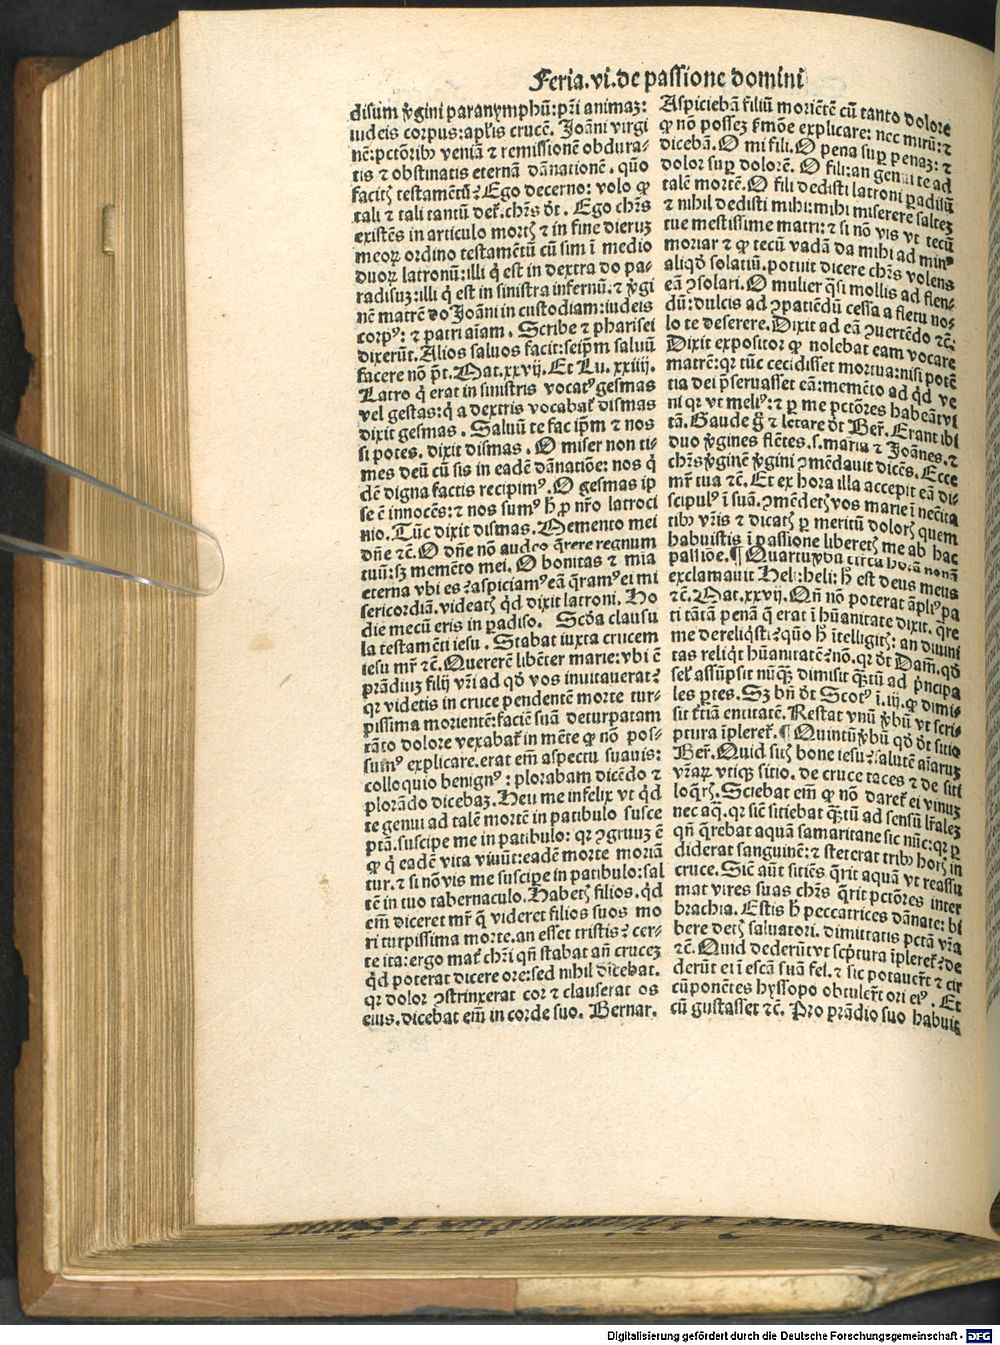 Feria.vi.de passione domini
disum v̄gini paranymphū:pr̄i animaꝫ:
iudeis corpus:apl̄is crucē. Joāni virgi
nē:pctōribꝰ veniā ⁊ remissionē obdura-
tis ⁊ obstinatis eternā dānationē. quō
facitꝭ testamētū? Ego decerno: volo ꝙ
tali ⁊ tali tantū det̄. chr̄s d̄t. Ego chr̄s
existēs in articulo mortꝭ ⁊ in fine dieruꝫ
meoꝝ ordino testamētū cū sim ī medio
duoꝝ latronū:illi q̇ est in dextra do pa-
radisuꝫ:illi q̇ est in sinistra infernū.⁊ v̄gi
nē matrē do Joāni in custodiam:iudeis
corpꝰ: ⁊ patri aīam. Scribe ⁊ pharisei
dixerūt. Alios saluos facit:seip̄m saluū
facere nō p̄t. Mat.xxvij. Et Lu. xxiiij.
Latro q̇ erat in sinistris vocatꝰ gesmas
vel gestas:q̇ a dextris vocabat̄ dismas
dixit gesmas. Saluū te fac ip̄m ⁊ nos
si potes. dixit dismas. O miser non ti-
mes deū cū sis in eadē dānatiōe: nos q̇
dē digna factis recipimꝰ. O gesmas ip
se ē innocēs: ⁊ nos sumꝰ h̄ ꝓ nr̄o latroci
nio. Tūc dixit dismas. Memento mei
dn̄e ⁊c̄. O dn̄e nō audeo q̄rere regnum
tuū:sꝫ memēto mei. O bonitas ⁊ mīa
eterna vbi es? aspiciamꝰ eā q̄ramꝰ ei mi
sericordiā. videatꝭ q̇d dixit latroni. Ho
die mecū eris in ꝑadiso. Scd̄a clausu
la testamēti iesu. Stabat iuxta crucem
iesu mr̄ ⁊c̄. Quererē libēter marie: vbi ē
prādiuꝫ filij vr̄i ad qd̄ vos inuitauerat?
qꝛ videtis in cruce pendentē morte tur-
pissima morientē: faciē suā deturpatam
tāto dolore vexabat̄ in mēte ꝙ nō pos-
sumꝰ explicare. erat em̄ aspectu suauis:
colloquio benignꝰ: plorabam dicēdo ⁊
plorādo dicebaꝫ. Heu me infelix vt q̇d
te genui ad talē mortē in patibulo susce
ptā. suscipe me in patibulo: qꝛ ꝯgruuꝫ ē
ꝙ q̇ eadē vita viuūt: eadē morte moriā
tur. ⁊ si nō vis me suscipe in patibulo: sal
tē in tuo tabernaculo. Habetꝭ filios. q̇d
em̄ diceret mr̄ q̄ videret filios suos mo
ri turpissima morte. an esset tristis? cer-
te ita: ergo mat̄ chr̄i qn̄ stabat an̄ cruceꝫ
q̇d poterat dicere ore: sed nihil dicebat.
qꝛ dolor ꝯstrinxerat cor ⁊ clauserat os
eius. dicebat em̄ in corde suo. Bernar.
Aspiciebā filiū moriētē cū tanto dolore
ꝙ nō posseꝫ s̄mōe explicare: nec mirū: ⁊
dicebā. O mi fili. O pena suꝑ penaꝫ: ⁊
dolor suꝑ dolorē. O fili: an genui te ad
talē mortē. O fili dedisti latroni ꝑadisū
⁊ nihil dedisti mihi: mihi miserere salteꝫ
tue mestissime matri: ⁊ si nō vis vt tecū
moriar ⁊ ꝙ tecū vadā da mihi ad minꝰ
aliqd̄ solatiū. potuit dicere chr̄s volens
eā ꝯsolari. O mulier q̄si mollis ad flen-
dū: dulcis ad ꝯpatiēdū cessa a fletu no-
lo te deserere. Dixit ad eā ꝯuertēdo ⁊c̄.
Dixit expositor ꝙ nolebat eam vocare
matrē: qꝛ tūc cecidisset mortua: nisi potē
tia dei p̄seruasset eā: memēto ad q̇d ve
ni qꝛ vt meliꝰ: ⁊ ꝑ me pctōres habeāt vi
tā. Gaude g̊ ⁊ letare d̄t Ber̄. Erant ibi
duo v̄gines flētes. s. maria ⁊ Joānes. ⁊
chr̄s v̄ginē v̄gini ꝯmēdauit dicēs. Ecce
mr̄ tua ⁊c̄. Et ex hora illa accepit eā di-
scipulꝰ ī suā. ꝯmēdetꝭ vos marie ī necīta
tibꝰ vr̄is ⁊ dicatꝭ ꝑ meritū dolorꝭ quem
habuistis ī passione liberetꝭ me ab hac
passiōe. ¶ Quartū v̄bū circa horā nonā
exclamauit Heli: heli: h̄ est deus meus
⁊c̄. Mat.xxvij. Qn̄ nō poterat āpliꝰ pa
ti tātā penā q̄ erat ī hūanitate dixit. q̄re
me dereliq̇sti? quō h̄ ītelligitꝭ: an diuini
tas reliq̇t hūanitatē? nō. qꝛ d̄t Dam̄. qd̄
sel̄ assūpsit nūq̄ꝫ dimisit q̄ꝫtū ad p̄ncipa
les ꝑtes. Sꝫ bn̄ d̄t Scotꝰ ī. iij. ꝙ dimi-
sit t̄tiā entitatē. Restat vnū v̄bū vt scri-
ptura īpleret̄. ¶ Quintū v̄bū qd̄ d̄t sitio
Ber̄. Quid sitꝭ bone iesu? salutē aīaruꝫ
vr̄aꝝ vtiqꝫ sitio. de cruce taces ⁊ de siti
loq̄rꝭ. Sciebat em̄ ꝙ nō daret̄ ei vinuꝫ
nec aq̄. qꝛ sic̄ sitiebat q̄ꝫtū ad sensū lr̄aleꝫ
qn̄ q̄rebat aquā samaritane sic nūc: qꝛ ꝑ
diderat sanguinē: ⁊ steterat tribꝰ horꝭ in
cruce. Sic̄ aūt sitiēs q̄rit aquā vt reassu
mat vires suas chr̄s q̄rit pctōres inter
brachia. Estis h̄ peccatrices dānate: bi
bere detꝭ saluatori. dimittatis pctā vr̄a
⁊c̄. Quid dederūt vt scp̄tura īpleret̄? de
derūt ei ī escā suā fel. ⁊ sic potauer̄t ⁊ cir
cūponētes hyssopo obtuler̄t ori eiꝰ. Et
cū gustasset ⁊c̄. Pro prādio suo habuit
Digitalisierung gefördert durch die Deutsche Forschungsgemeinschaft - DFG